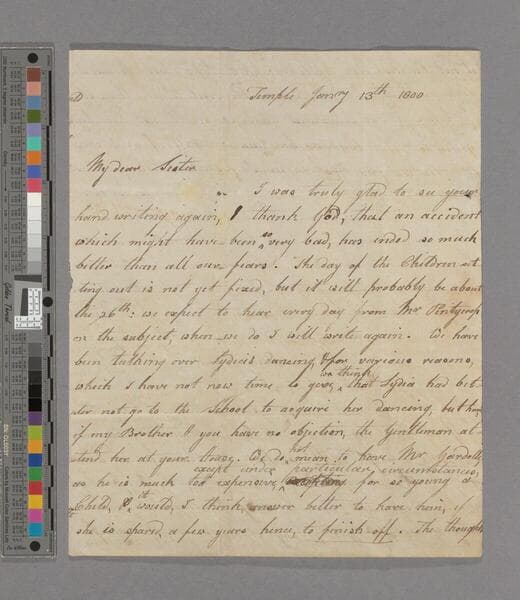 Temple Janry 13th 1800
My dear Sister
I was truly glad to see your
hand writing again, I thank God, that an accident
which might have been so very bad, has ended so much
better than all our fears. The day of the Children set
ting out is not yet fixed, but it will probably be about
the 26th: we expect to hear every day from Mr
on the subject, when we do I will write again. We have
been talking over Lydia's dancing, & for various reasons,
which I have not now time to give, we think that Lydia had bet
ter not go to the School to acquire her dancing, but
if my Brother & you have no objection, the Gentleman at
tend her at your House. We do not mean to have Mr
as he is much too expensive, except under particular circumstances, for so young a
Child, & it would, I think, answer better to have him, if
she is spared, a few years hence, to finish off. The thoughts